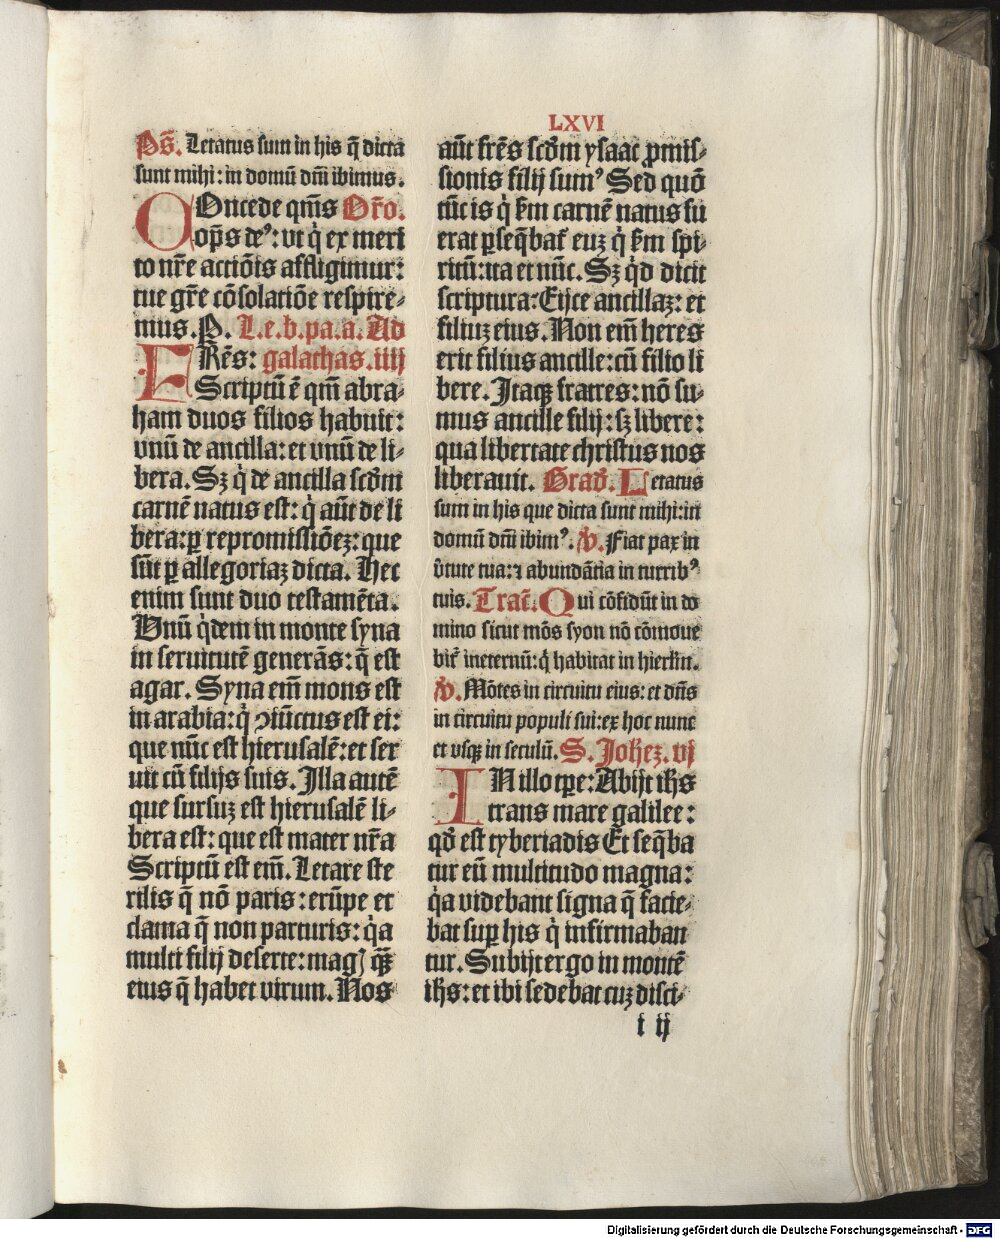 LXVI
Ps̄. Letatus sum in his q̄ dicta
sunt mihi: in domū dn̄i ibimus.
COncede qm̄s Or̄o.
op̄s deꝰ: vt q̇ ex meri
to nr̄e actiōis affligimur:
tue gr̄e cōsolatiōe respire⸗
mus. P. L.e.b.pa.a. Ad
FRēs: galathas.iiij
Scriptū ē qm̄ abra⸗
ham duos filios habuit:
vnū de ancilla: et vnū de li⸗
bera. Sꝫ q̇ de ancilla scd̄m
carnē natus est: q̇ aūt de li
bera: ꝑ repromissiōeꝫ: que
sūt ꝑ allegoriaꝫ dicta. Hec
enim sunt duo testamēta.
Vnū q̇dem in monte syna
in seruitutē generās: q̄ est
agar. Syna em̄ mons est
in arabia: q̇ ꝯiūctus est ei:
que nūc est hierusalē: et ser
uit cū filijs suis. Illa autē
que sursuꝫ est hierusalē li⸗
bera est: que est mater nr̄a
Scriptū est em̄. Letare ste
rilis q̄ nō paris: erūpe et
clama q̄ non parturis: q̇a
multi filij deserte: magꝭ q̄ꝫ
eius q̄ habet virum. Nos
aūt frēs scd̄m ysaac ꝓmis⸗
sionis filij sumꝰ Sed quō
tūc is q̇ ẜm carnē natus fu
erat ꝑseq̄bat᷑ euꝫ q̇ ẜm spi⸗
ritū: ita et nūc. Sꝫ q̇d dicit
scriptura: Eijce ancillaꝫ: et
filiuꝫ eius. Non em̄ heres
erit filius ancille: cū filio li
bere. Itaqꝫ fratres: nō su⸗
mus ancille filij: sꝫ libere:
qua libertate christus nos
liberauit. Grad̄. Letatus
sum in his que dicta sunt mihi: in
domū dn̄i ibimꝰ. V̄. Fiat pax in
v̄tute tua: ⁊ abundātia in turribꝰ
tuis. Trac̄. Qui cōfidūt in do
mino sicut mōs syon nō cōmoue
bit᷑ ineternū: q̇ habitat in hierl̄m.
V̄. Mōtes in circuitu eius: et dn̄s
in circuitu populi sui: ex hoc nunc
et vsqꝫ in seculū. S. Joheꝫ. vj
IN illo tꝑe: Abijt ih̄s
trans mare galilee:
qd̄ est tyberiadis Et seq̄ba
tur eū multitudo magna:
q̇a videbant signa q̄ facie⸗
bat suꝑ his q̇ infirmaban
tur. Subijt ergo in montē
ih̄s: et ibi sedebat cuꝫ disci⸗
i ij
Digitalisierung gefördert durch die Deutsche Forschungsgemeinschaft - DFG